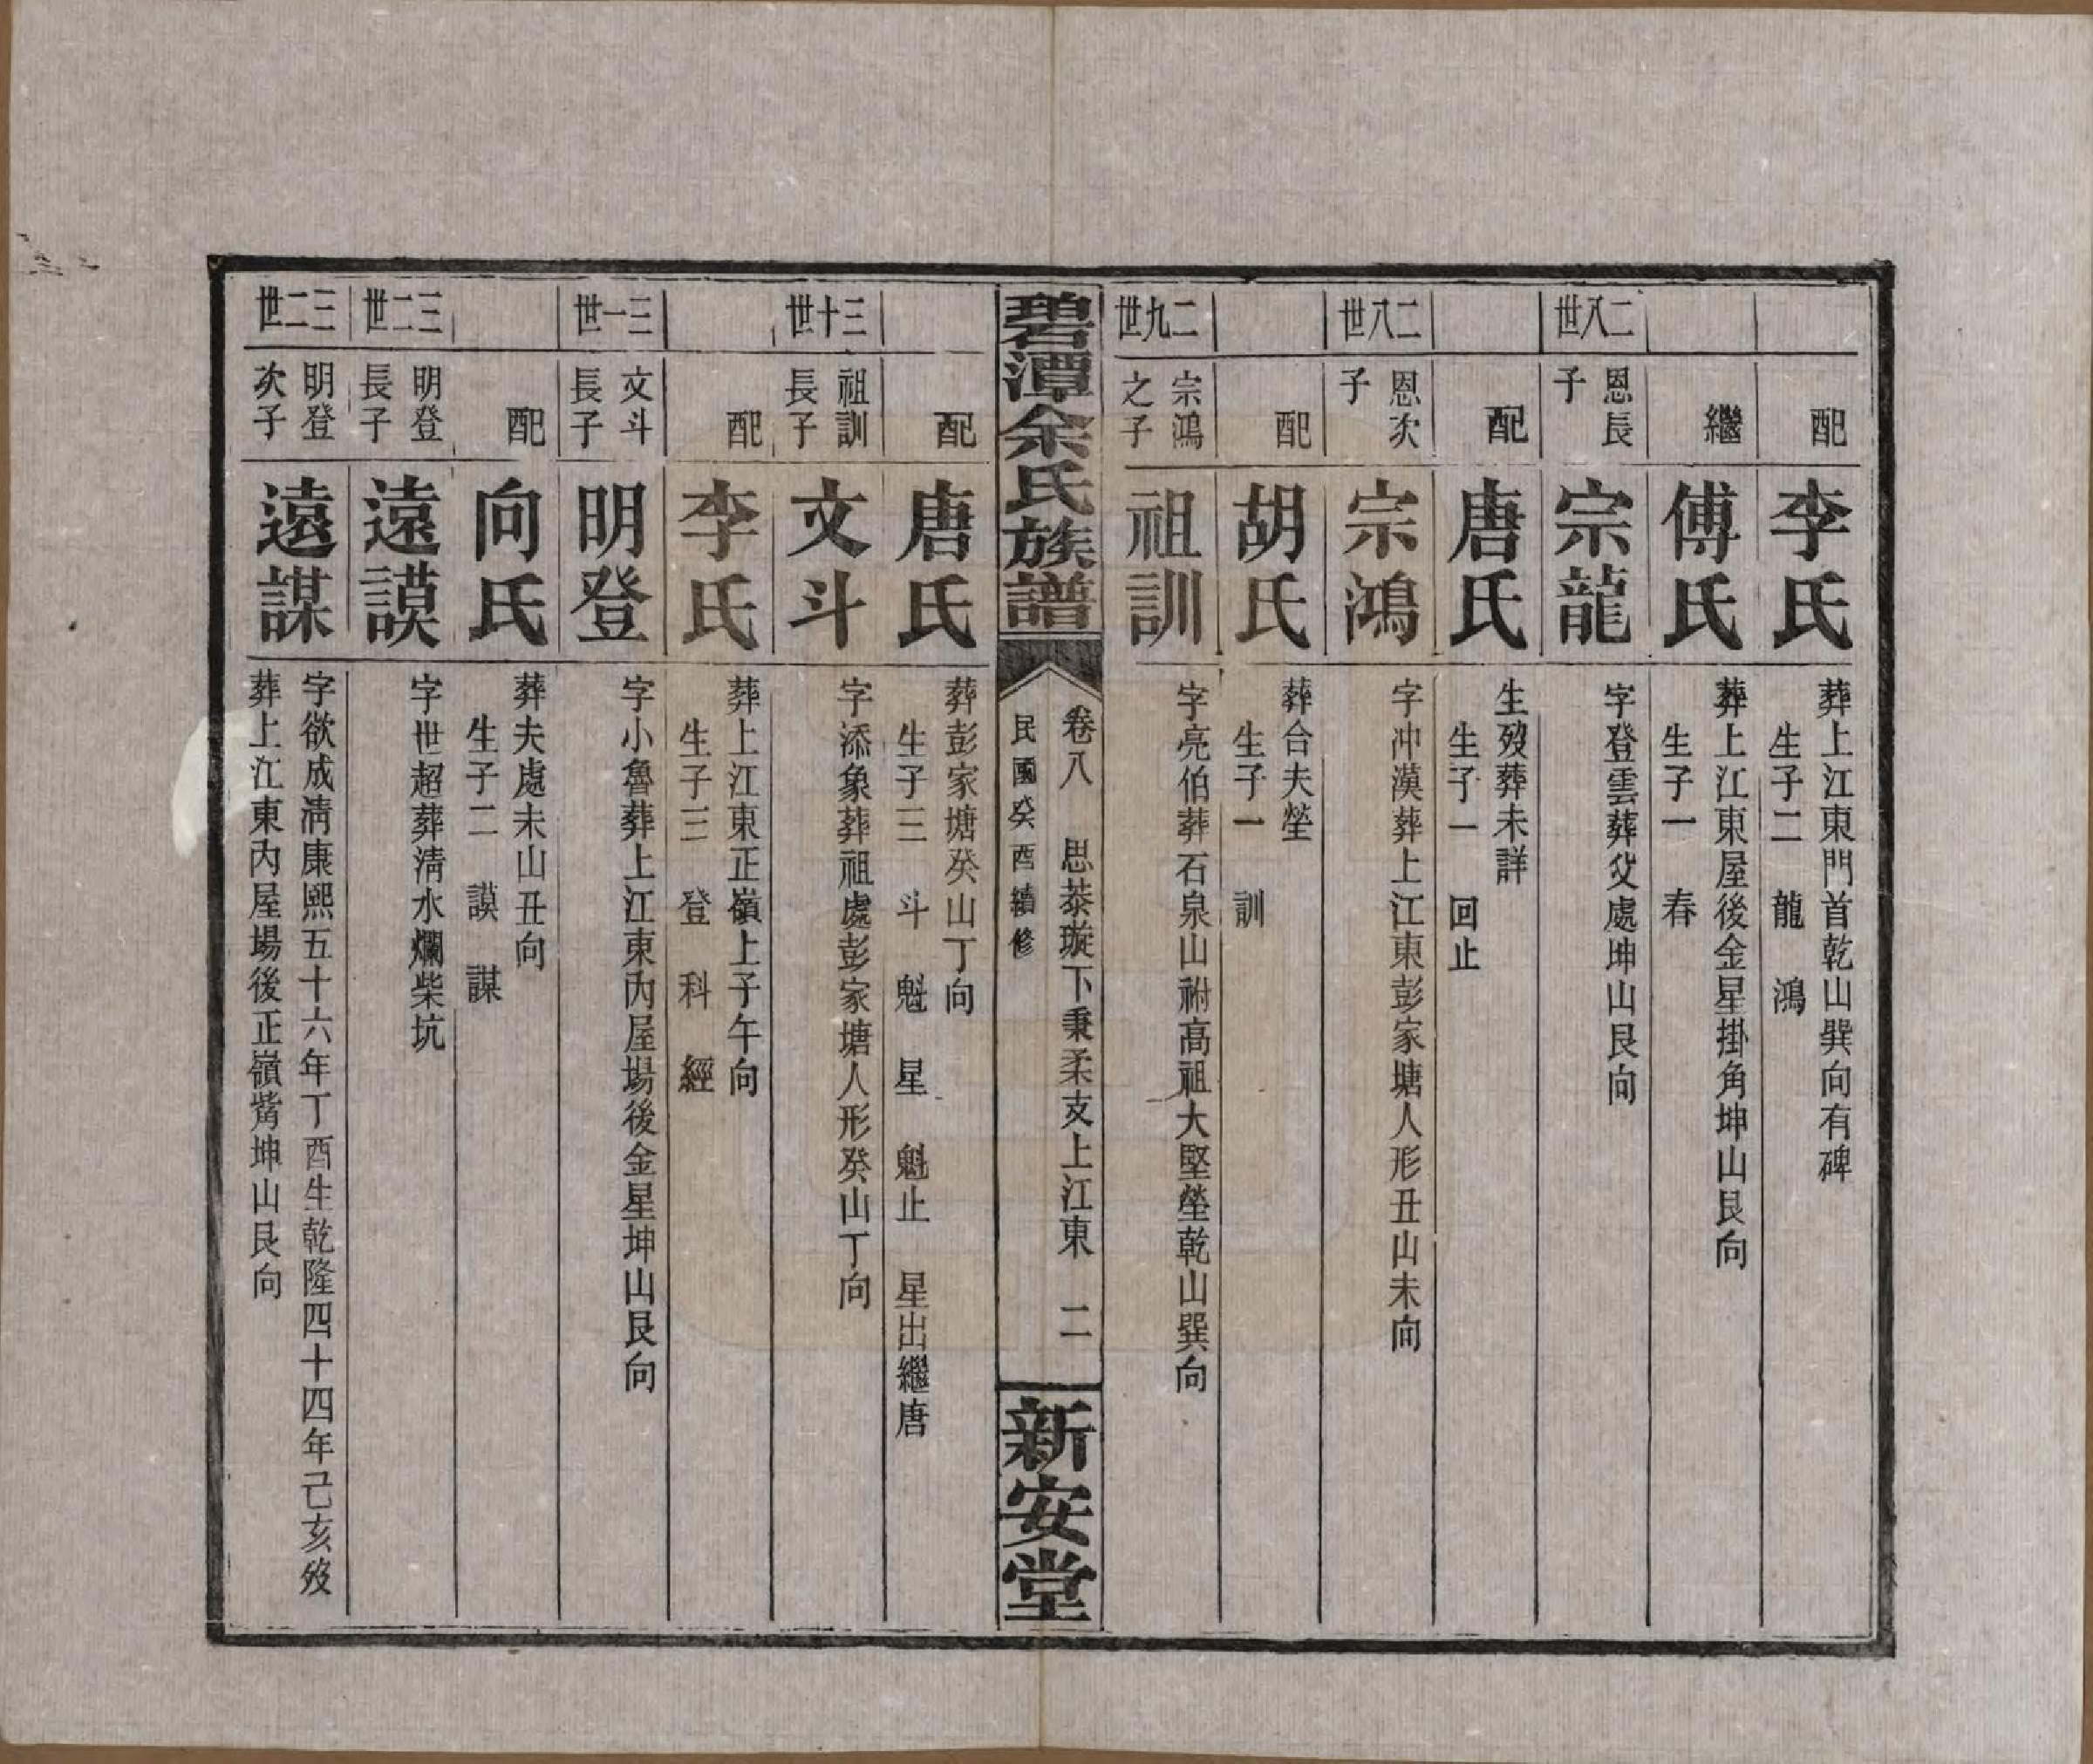 配
李氏
葬上江東門首乾山巽向有碑
生子二　龍　鴻
繼
傅氏
葬上江東屋後金星掛角坤山艮向
生子一　春
二八世
恩長
子
宗龍
字登雲葬父處坤山艮向
配
唐氏
生歿葬未詳
生子一　回止
二八世
恩次
子
宗鴻
字冲漢葬上江東彭家塘人形丑山未向
配
胡氏
葬合夫塋
生子一　訓
二九世
宗鴻
之子
祖訓
字亮伯葬石泉山祔高祖大堅塋乾山巽向
碧潭余氏族譜
卷八　思恭璇下秉柔支上江東　二
民國癸酉續修
新安堂
配
唐氏
葬彭家塘癸山丁向
生子三　斗　魁　星　魁止　星出繼唐
三十世
祖訓
長子
文斗
字添象葬祖處彭家塘人形癸山丁向
配
李氏
葬上江東正嶺上子午向
生子三　登　科　經
三一世
文斗
長子
明登
字小魯葬上江東內屋場後金星坤山艮向
配
向氏
葬夫處未山丑向
生子二　謨　謀
三二世
明登
長子
遠謨
字世超葬淸水爛柴坑
三二世
明登
次子
遠謀
字欲成淸康熙五十六年丁酉生乾隆四十四年己亥歿
葬上江東內屋場後正嶺觜坤山艮向